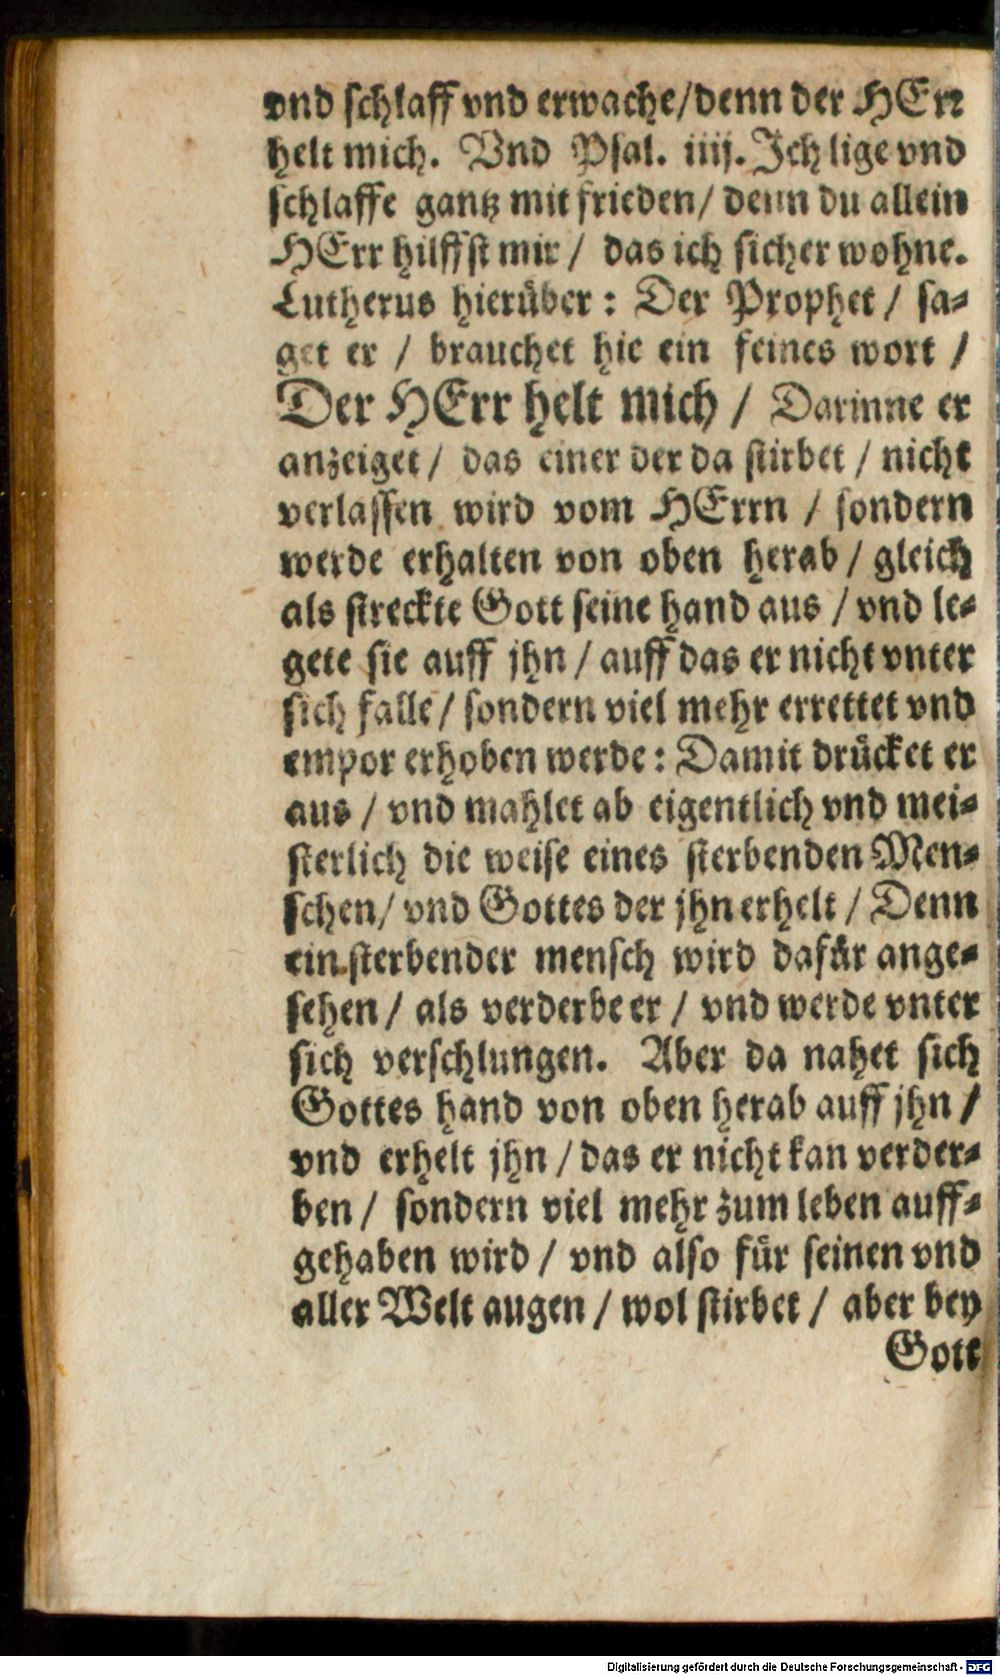 vnd schlaff vnd erwache/denn der HErr
helt mich. Vnd Psal. iiij. Ich lige vnd
schlaffe gantz mit frieden/ denn du allein
HErr hilffst mir / das ich sicher wohne.
Lutherus hierüber : Der Prophet / sa⸗
get er / brauchet hie ein feines wort /
Der HErr helt mich / Darinne er
anzeiget / das einer der da stirbet / nicht
verlassen wird vom HErrn / sondern
werde erhalten von oben herab / gleich
als streckte Gott seine hand aus / vnd le⸗
gete sie auff jhn / auff das er nicht vnter
sich falle / sondern viel mehr errettet vnd
empor erhoben werde : Damit drücket er
aus / vnd mahlet ab eigentlich vnd mei⸗
sterlich die weise eines sterbenden Men⸗
schen/ vnd Gottes der jhn erhelt / Denn
ein sterbender mensch wird dafür ange⸗
sehen / als verderbe er / vnd werde vnter
sich verschlungen. Aber da nahet sich
Gottes hand von oben herab auff jhn /
vnd erhelt jhn / das er nicht kan verder⸗
ben / sondern viel mehr zum leben auff⸗
gehaben wird / vnd also für seinen vnd
aller Welt augen / wol stirbet / aber bey
Gott
Digitalisierung gefördert durch die Deutsche Forschungsgemeinschaft - DFG